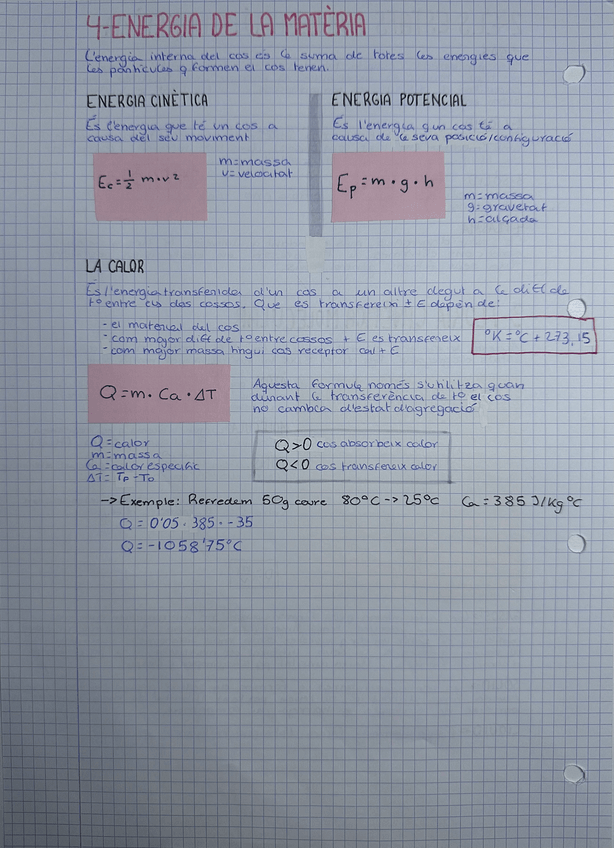 4-ENERGIA DE LA MATÈRIA
L'energia interna del cos és la suma de totes les energies que
les partícules q formen el cos tenen.
ENERGIA CINÈTICA
És l'energia que té un cos a
causa del seu moviment
Ec = 1/2 m·v²
m=massa
v=velocitat
ENERGIA POTENCIAL
És l'energia q un cos té a
causa de la seva posició/configuració
Ep = m·g·h
m=massa
g=gravetat
h=alçada
LA CALOR
És l'energia transferida d'un cos a un altre degut a la dif de
tº entre els dos cossos. Que es transfereix ± E depèn de:
- el material del cos
- com major dif de tº entre cossos + E es transfereix
- com major massa hngui cos receptor cal + E
ºK = ºC + 273,15
Q = m · Ca · ΔT
Aquesta formula només s'utilitza quan
durant la transferència de tº el cos
no cambia d'estat d'agregació
Q = calor
m = massa
Ca = calor específic
ΔT = TF - To
Q>0 cos absorbeix calor
Q<0 cos transfereix calor
-> Exemple: Refredem 50g coure 80ºC -> 25ºC Ca = 385 J/Kg ºC
Q = 0'05 · 385 · -35
Q = -1058'75ºC